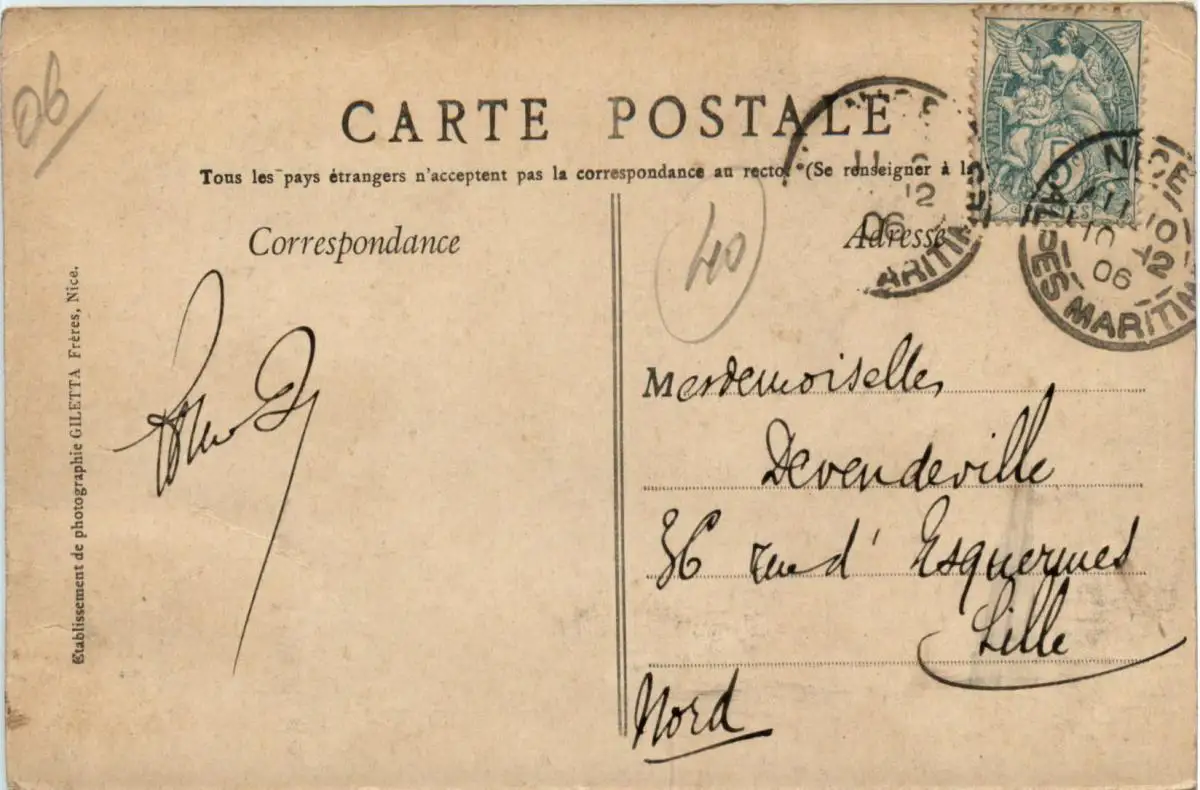 06
CARTE POSTALE
Tous les pays étrangers n'acceptent pas la correspondance au recto (Se renseigner à la
Correspondance
40
Adresse
12
06
MARITIM
NICE
10
10 -12
06
ALPES MARITIM
5c
Mesdemoiselles
Devendeville
36 rue d'Esquermes
Lille
Nord
Etablissement de photographie GILETTA Frères, Nice.